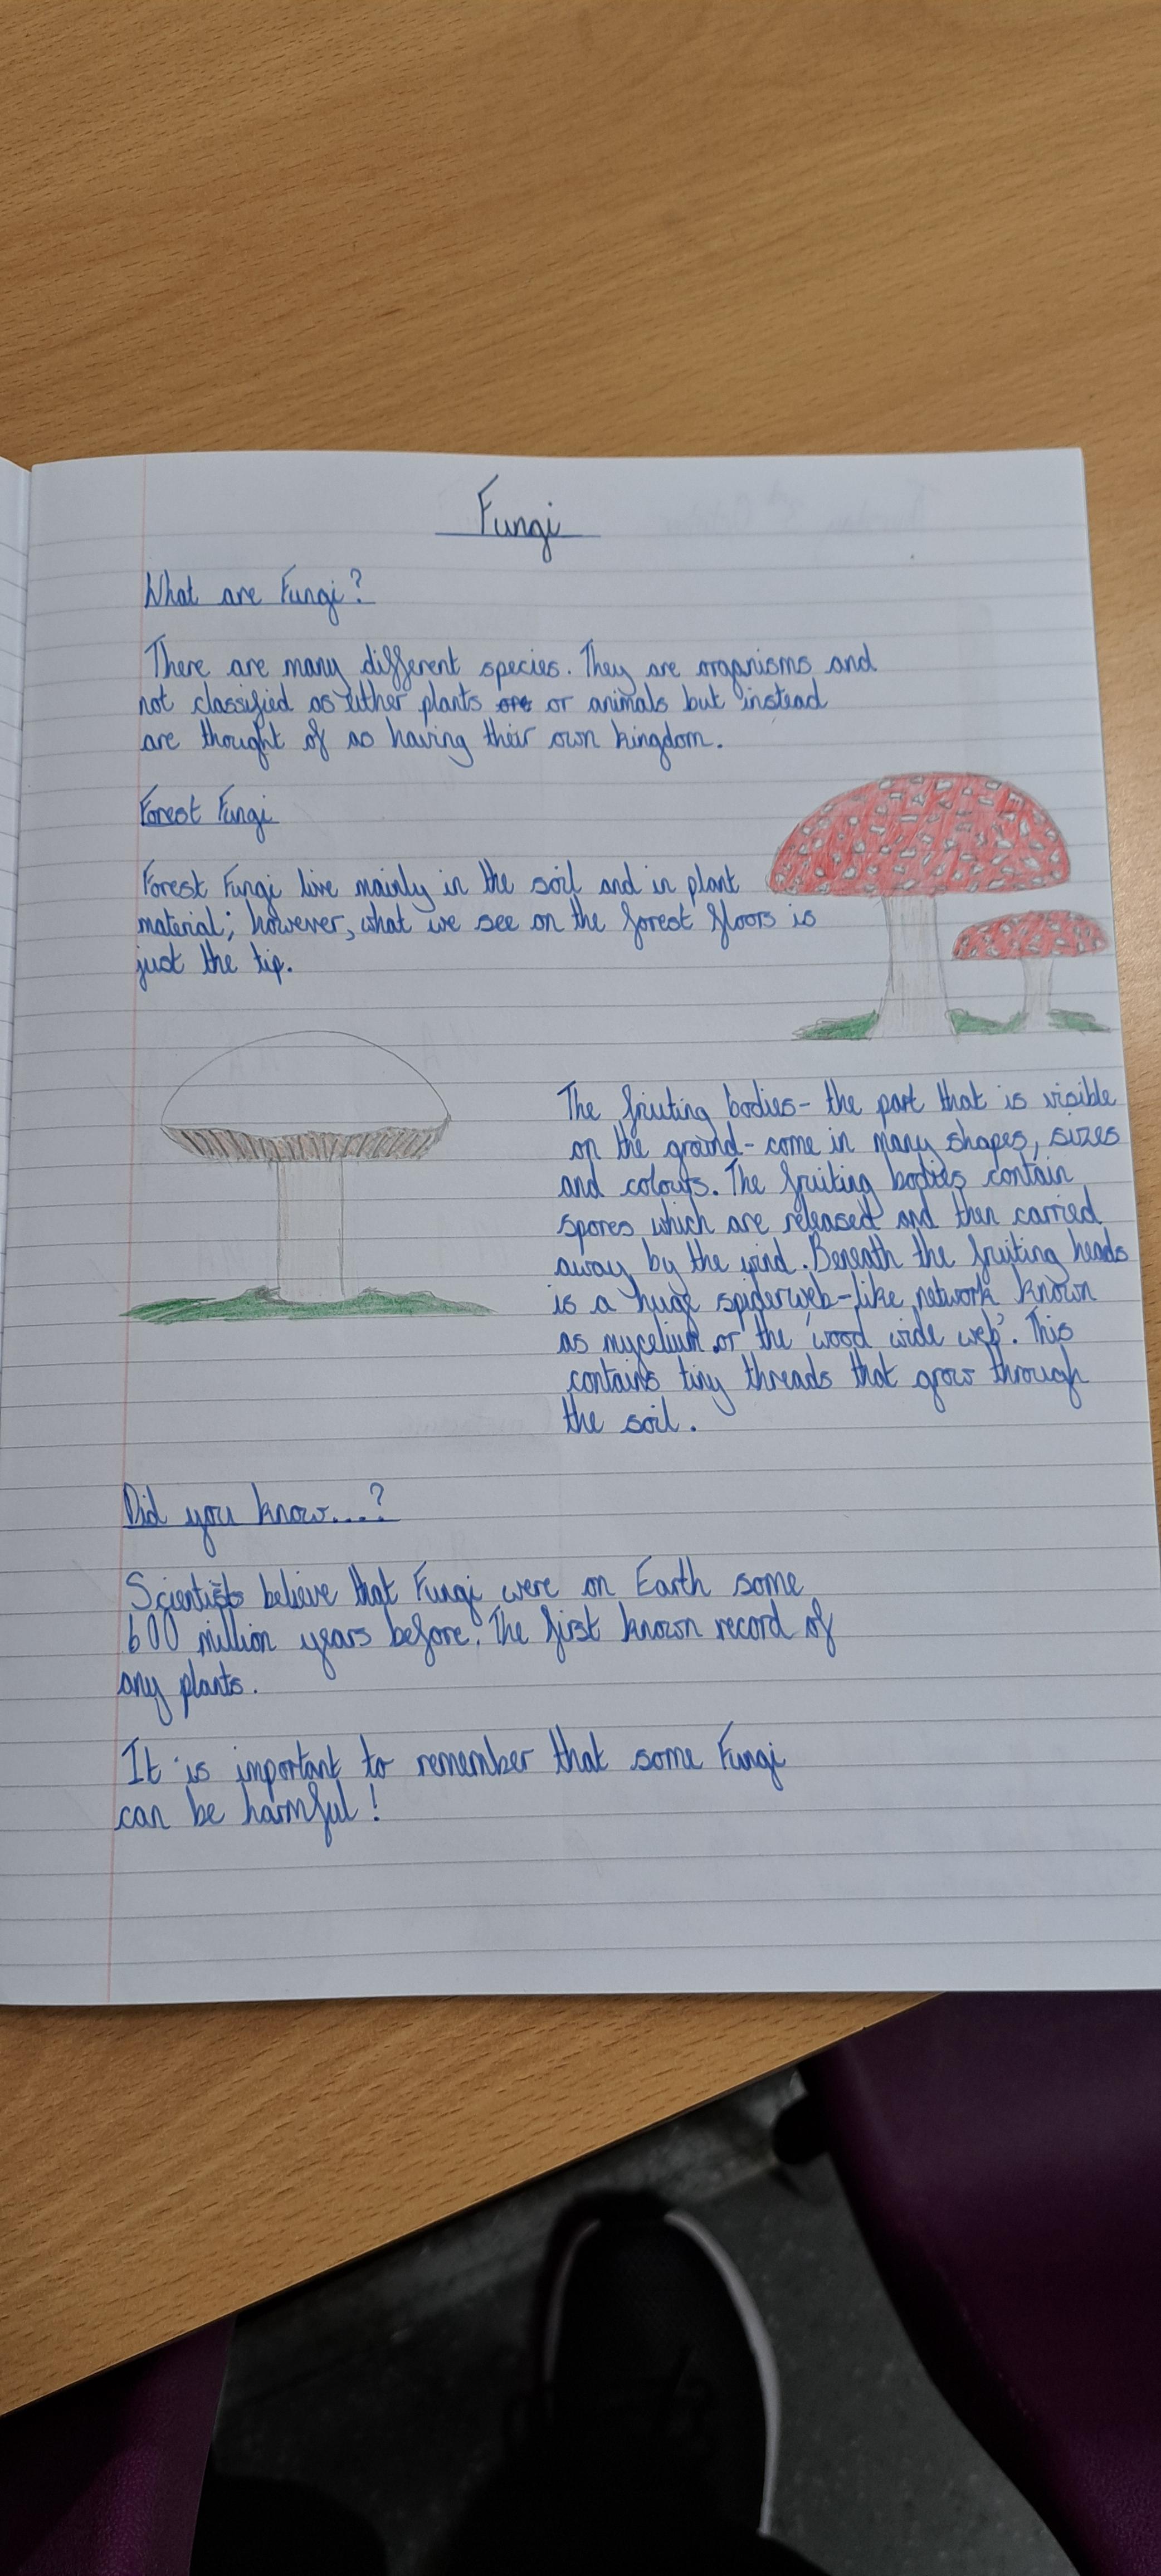 Fungi
What are Fungi?
There are many different species. They are organisms and
not classified as either plants or or animals but instead
are thought of as having their own kingdom.
Forest Fungi
Forest Fungi live mainly in the soil and in plant
material; however, what we see on the forest floors is
just the tip.
The fruiting bodies- the part that is visible
on the ground- come in many shapes, sizes
and colours. The fruiting bodies contain
spores which are released and then carried
away by the wind. Beneath the fruiting heads
is a huge spiderweb-like network known
as mycelium or the 'wood wide web'. This
contains tiny threads that grow through
the soil.
Did you know....?
Scientists believe that Fungi were on Earth some
600 million years before. The first known record of
any plants.
It is important to remember that some Fungi
can be harmful!